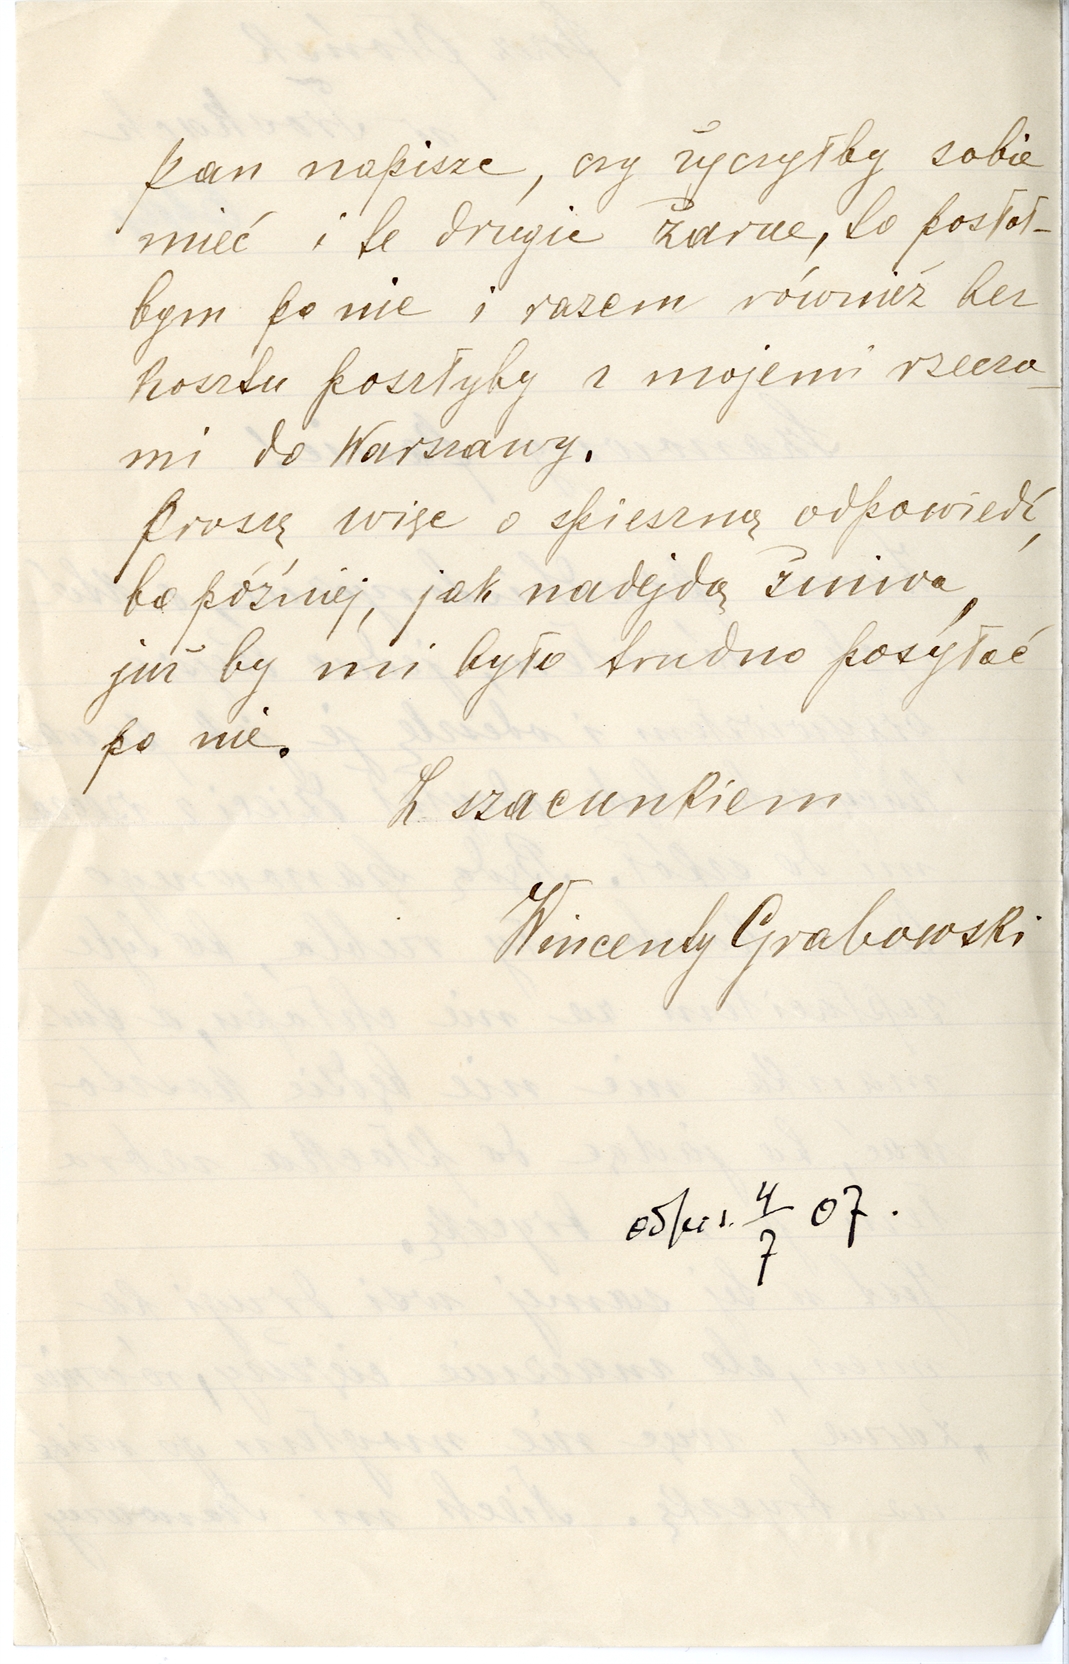 pan napisze, czy życzyłby sobie
mieć i te drugie żarna, to posłał-
bym po nie i razem również bez
kosztu poszłyby z mojemi rzecza-
mi do Warszawy.
Proszę więc o spieszną odpowiedź,
bo później, jak nadejdą żniwa,
już by mi było trudno posyłać
po nie.
Z szacunkiem
Wincenty Grabowski
odpis. 4/7 07.